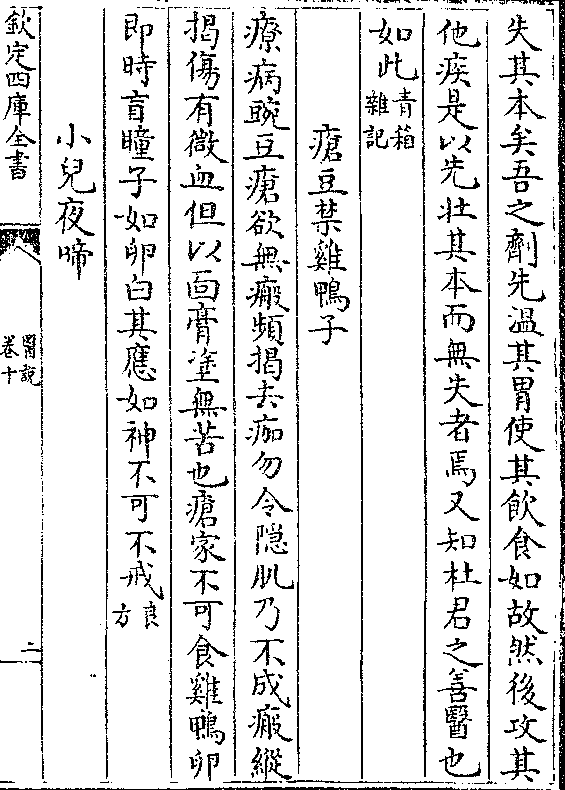 失其本矣吾之劑先温其胃使其飲食如故然後攻其
他疾是以先壯其本而無失者焉又知杜君之善醫也
如此青箱雜記
瘡豆禁雞鴨子
療病豌豆瘡欲無瘢頻揭去痂勿令隠肌乃不成瘢縱
揭傷有微血但以面膏塗無苦也瘡家不可食雞鴨卵
即時盲瞳子如卵白其應如神不可不戒良方
小兒夜啼
欽定四庫全書
醫説
卷十
二